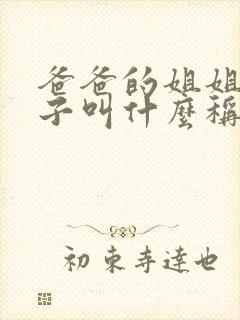 爸爸的姐姐
子叫什麼稱
初東寺達也